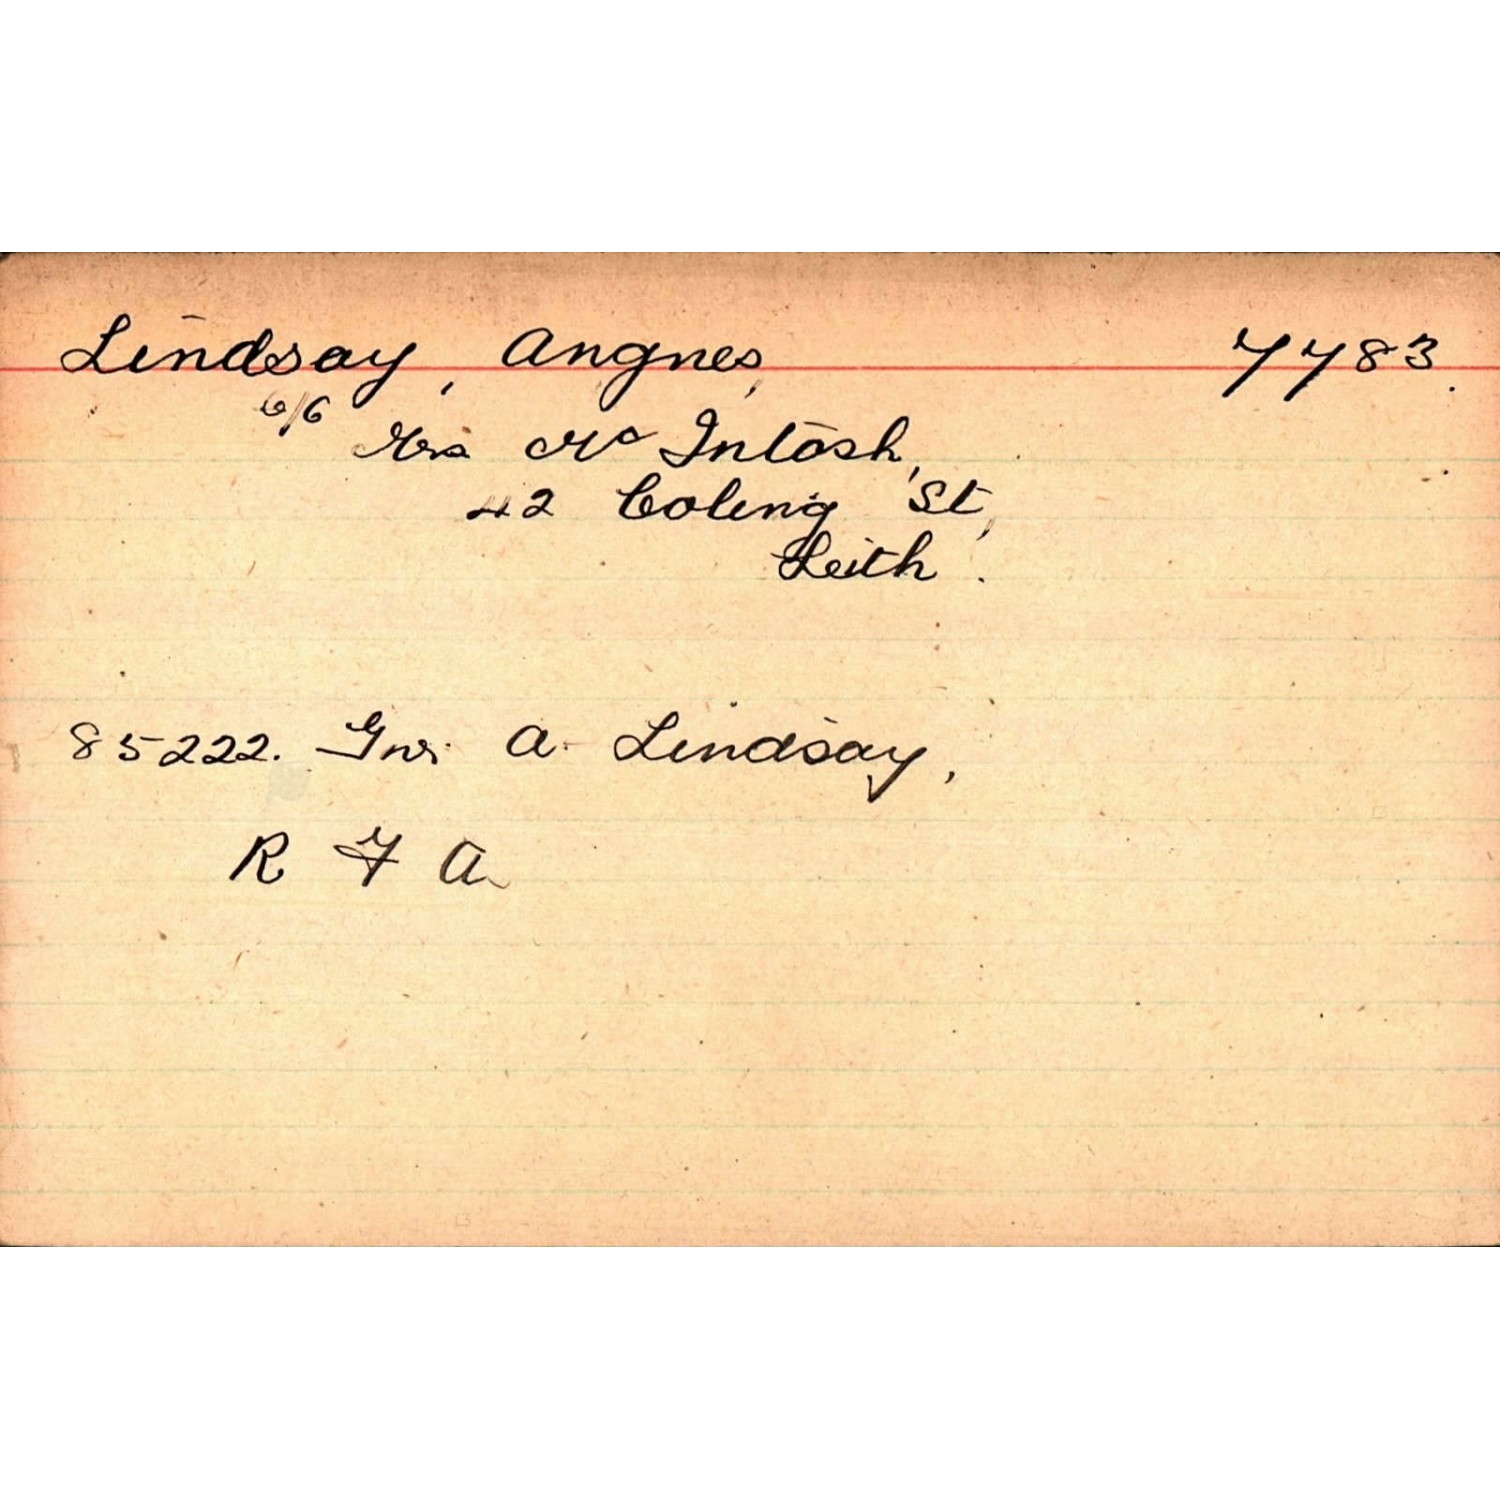 Lindsay, Angnes, 7783.
c/o Mrs Mc Intosh,
42 Coling St,
Leith.
85222. Gnr. A. Lindsay,
R F A